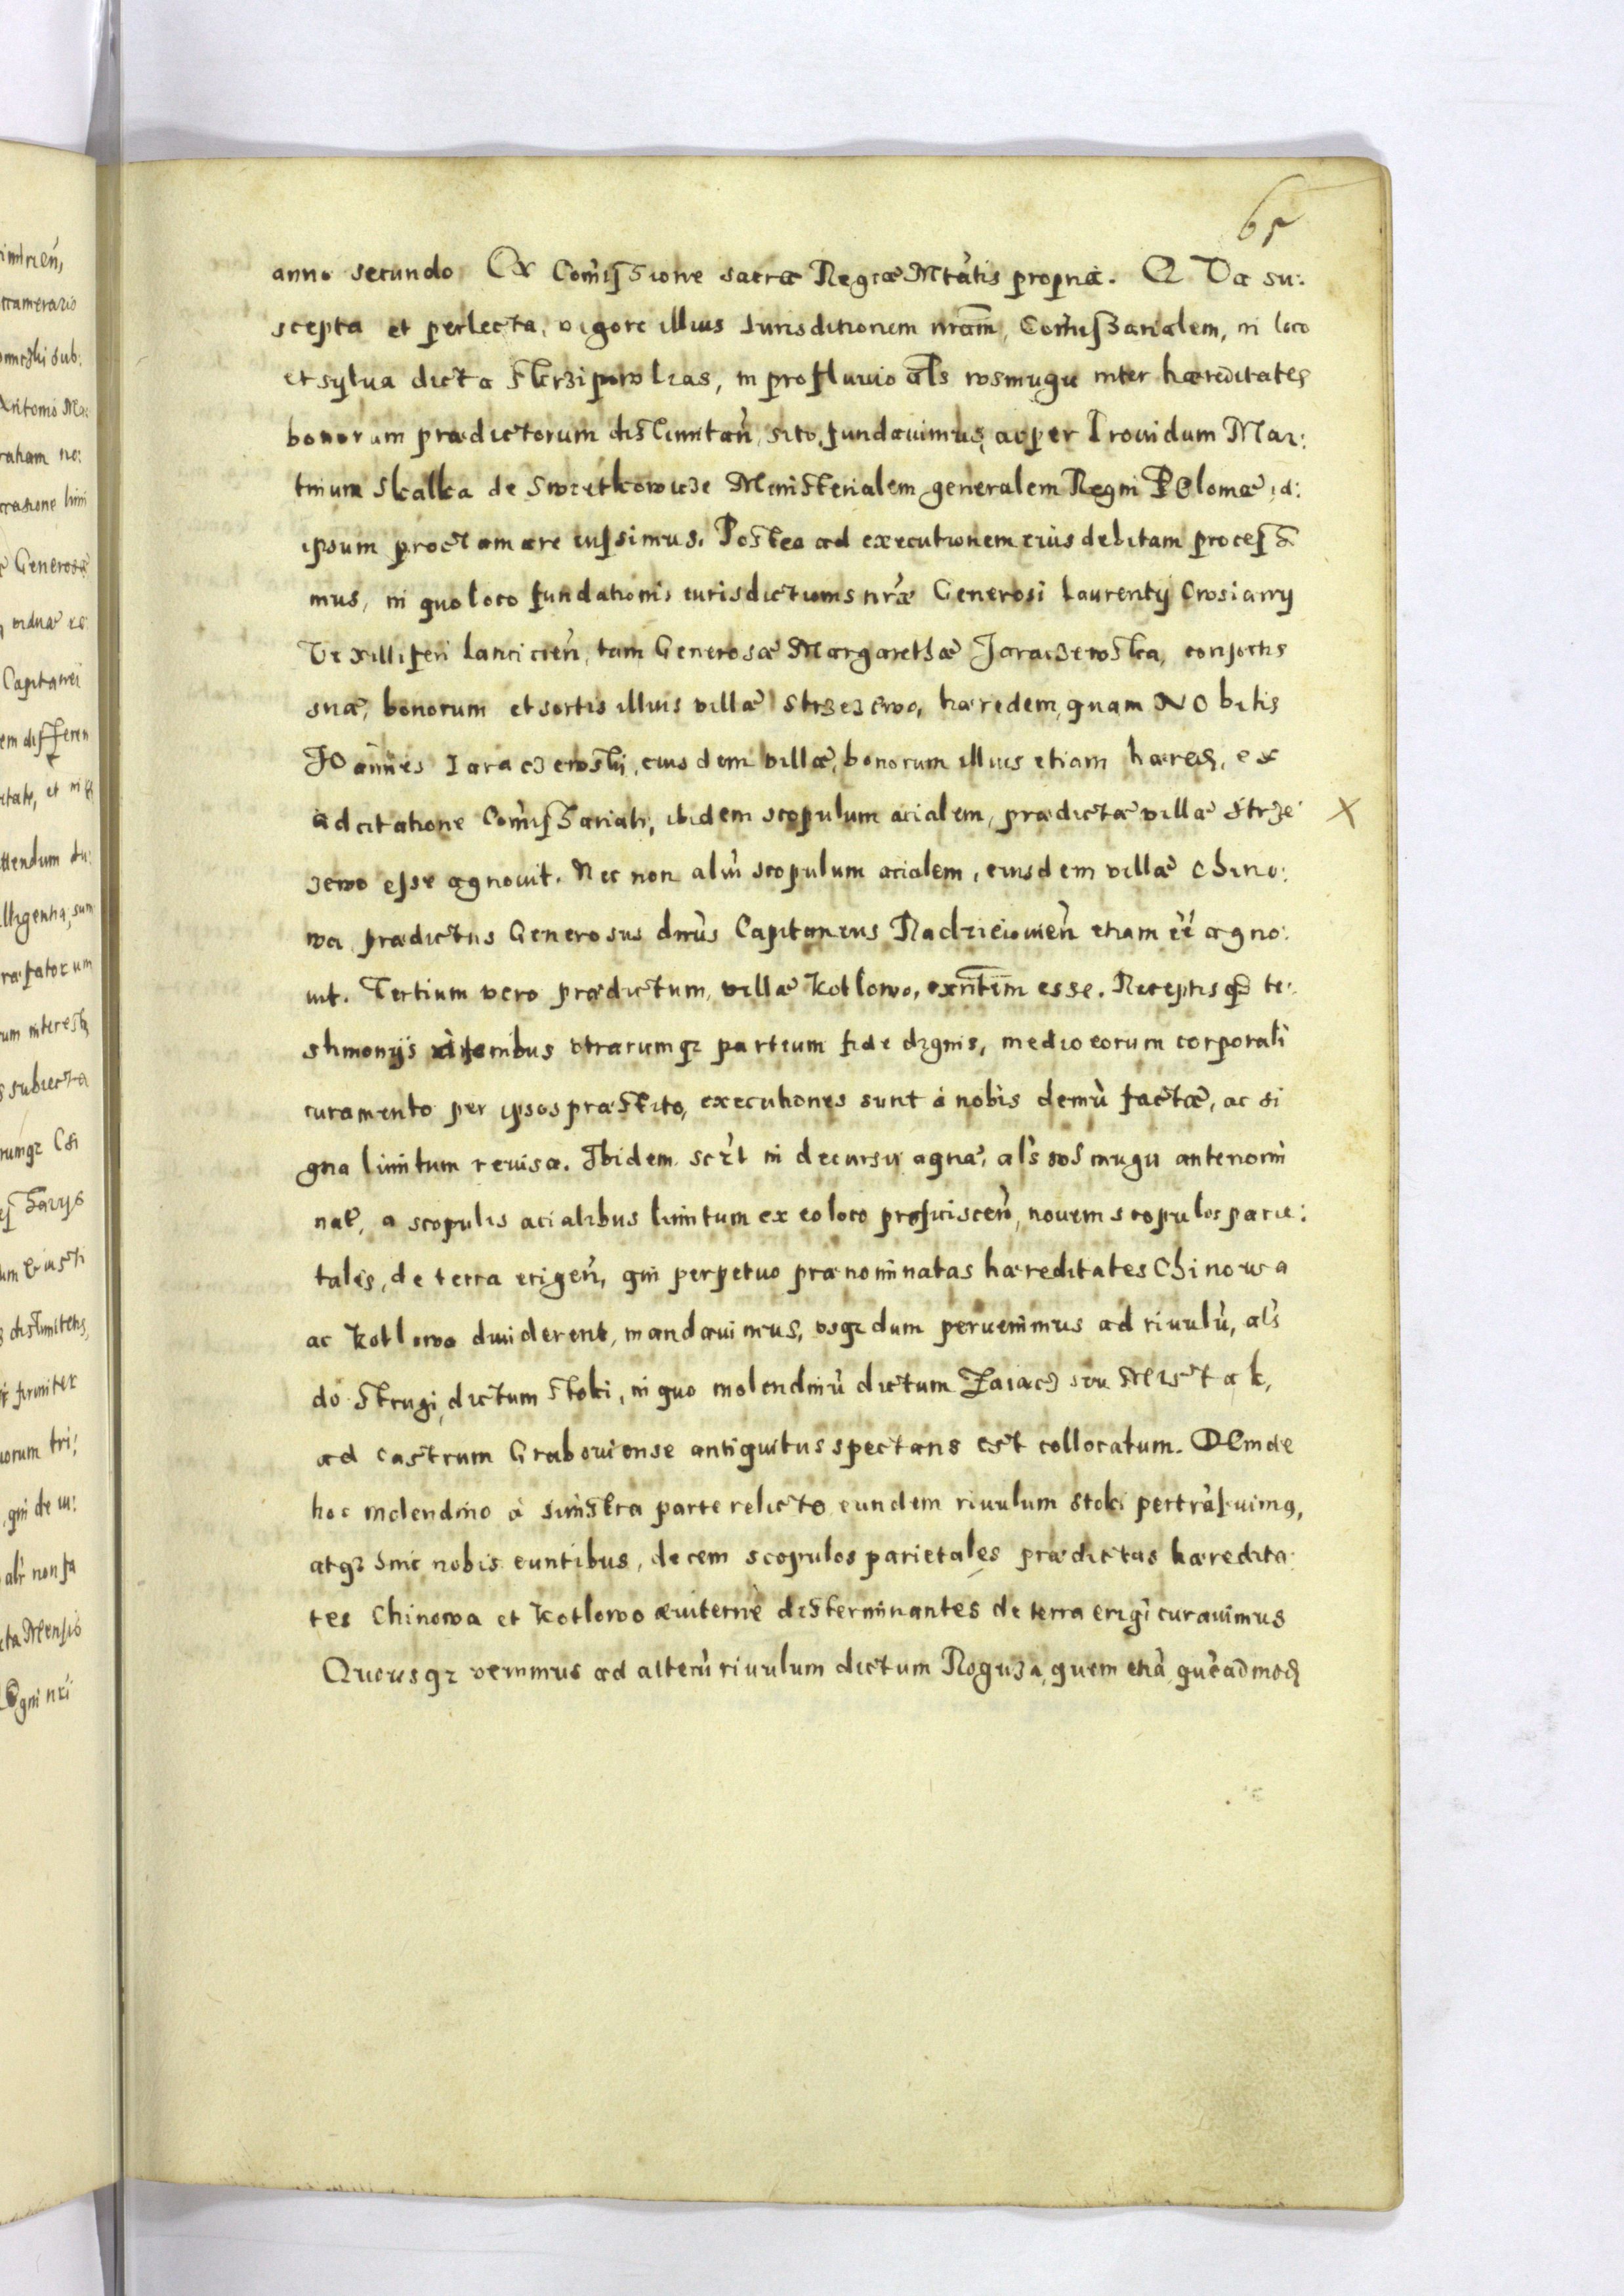 65
anno secundo Ex Com̃issione sacræ Regiæ Mtãtis propriæ. Qua su:
scepta et perlecta, vigore illius Iurisditionem nr̃am, Com̃issarialem, in loco
et sylua dicta skrzipow las, in profluuio al̃s wsmugu inter hæreditates
bonorum prædictorum distimitañ, sito, fundauimus, ac per Prouidum Mar:
tinum Skalka de Swietkowicze Ministerialem generalem Regni POloniæ id:
ipsum proclamare iussimus. Postea ad executionem eius debitam processi
mus, in quo loco fundationis iurisdictionis nr̃æ Generosi Laurentij Crosiarnÿ
Vexilliferi Lanciciеñ, tam Generosæ Margarethæ Jaraczewska, consortis
suæ, bonorum et sortis illius villæ Strzezewo, hæredem, quam NObilis
JOañnes Iaraczewski, eiusdem villæ, bonorum illius etiam hæres, ex
adcitatione Com̃issariali, ibidem scopulum acialem, prædictæ villæ Strze X
zewo esse agnouit. Nec non aliũ scopulum acialem, eiusdem villæ Chino:
wa prædictus Generosus dnũs Capitaneus Radzieiouieñ etiam eẽ agno:
uit. Tertium vero prædictum, villæ Kotlowo, exñtem esse. Receptisq te:
stimonijs utrarumq partium fide dignis, medio eorum corporali
iuramento per ipsos præstito, executiones sunt à nobis demũ factæ, ac si
gna limitum reuisa. Ibidem scz̃t in decursu aquæ, al̃s wsmugu antenomi
naẽ, a scopulis acialibus limitum ex eo loco proficisceñ, nouem scopulos parie:
tales, de terra erigeñ, qui perpetuo prænominatas hæreditates Chinowa
ac Kotlowo diuiderent, mandauimus, vsq dum peruenimus ad riuulũ, al̃s
do Strugi, dictum Stoki, in quo molendinũ dictum Zaiacz seu Mistak,
ad castrum Grabouiense antiquitus spectans est collocatum. DEinde
hoc molendino à sinistra parte relicto eundem riuulum Stoki pertrãsiuimq,
atq sinc nobis euntibus, decem scopulos parietales prædictas hæredita:
tes Chinowa et Kotlowo æuiternè disterminantes de terra erigi curauimus
Quousq venimus ad alterũ riuulum dictum Roguza, quem etiã quẽadmod